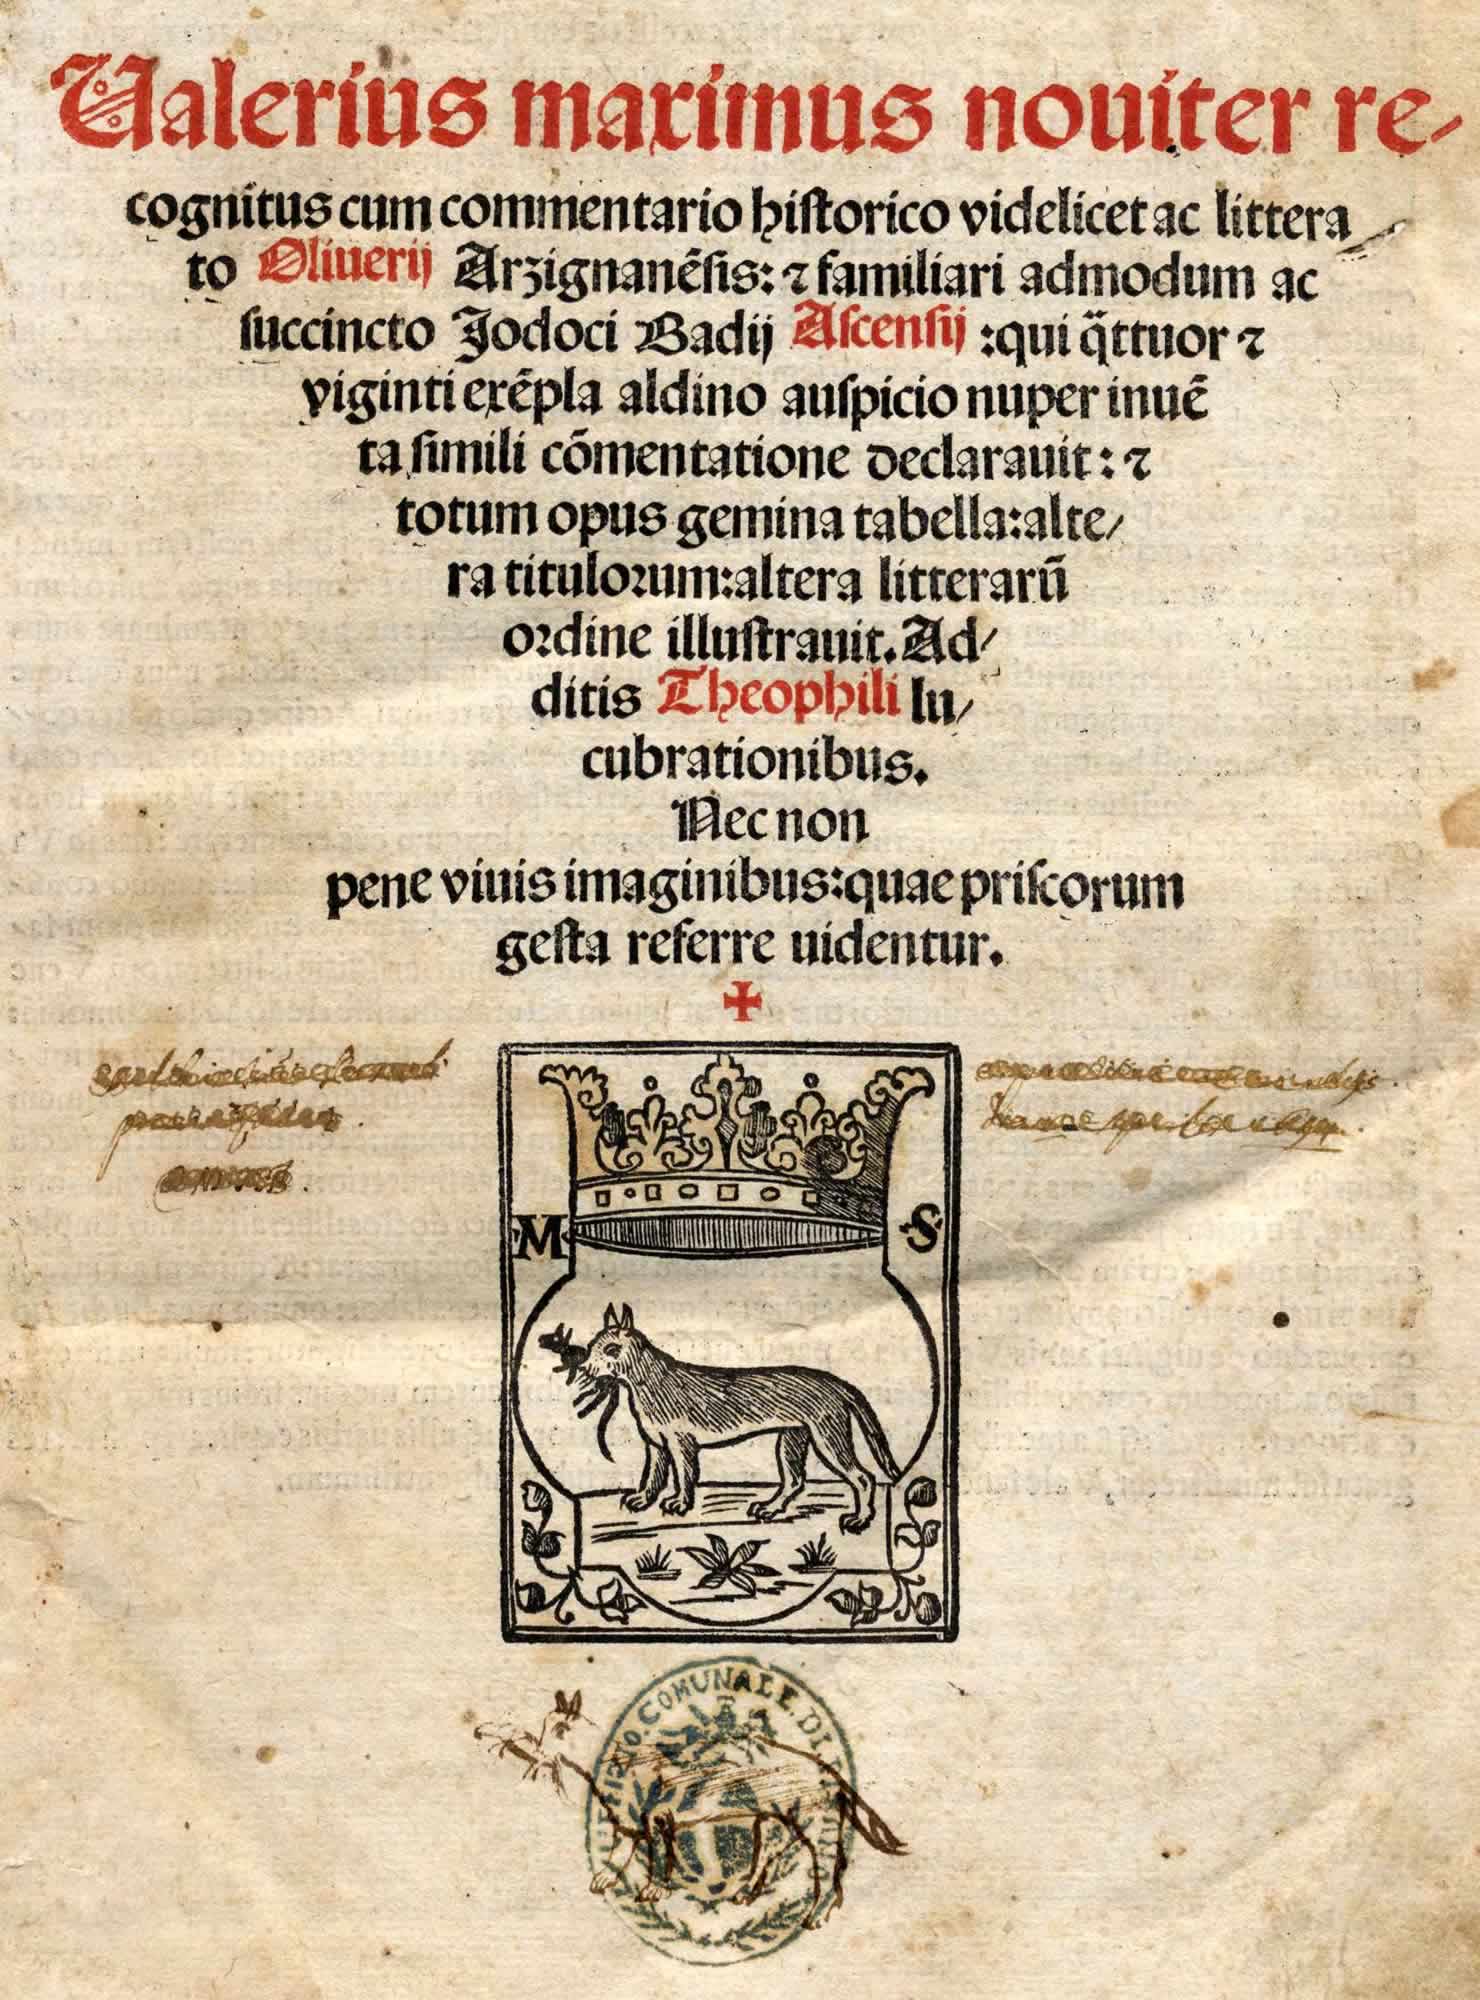 Ualerius maximus nouiter re⸗
cognitus cum commentario historico videlicet ac littera
to Oliuerij Arzignanēsis: ⁊ familiari admodum ac
succincto Jodoci Badij Ascensij :qui q̄ttuor ⁊
viginti exēpla aldino auspicio nuper inuē
ta simili cōmentatione declarauit: ⁊
totum opus gemina tabella:alte⸗
ra titulorum:altera litterarū
ordine illustrauit. Ad⸗
ditis Theophili lu⸗
cubrationibus.
Nec non
pene viuis imaginibus:quae priscorum
gesta referre uidentur.
M S
COMUNALE DI